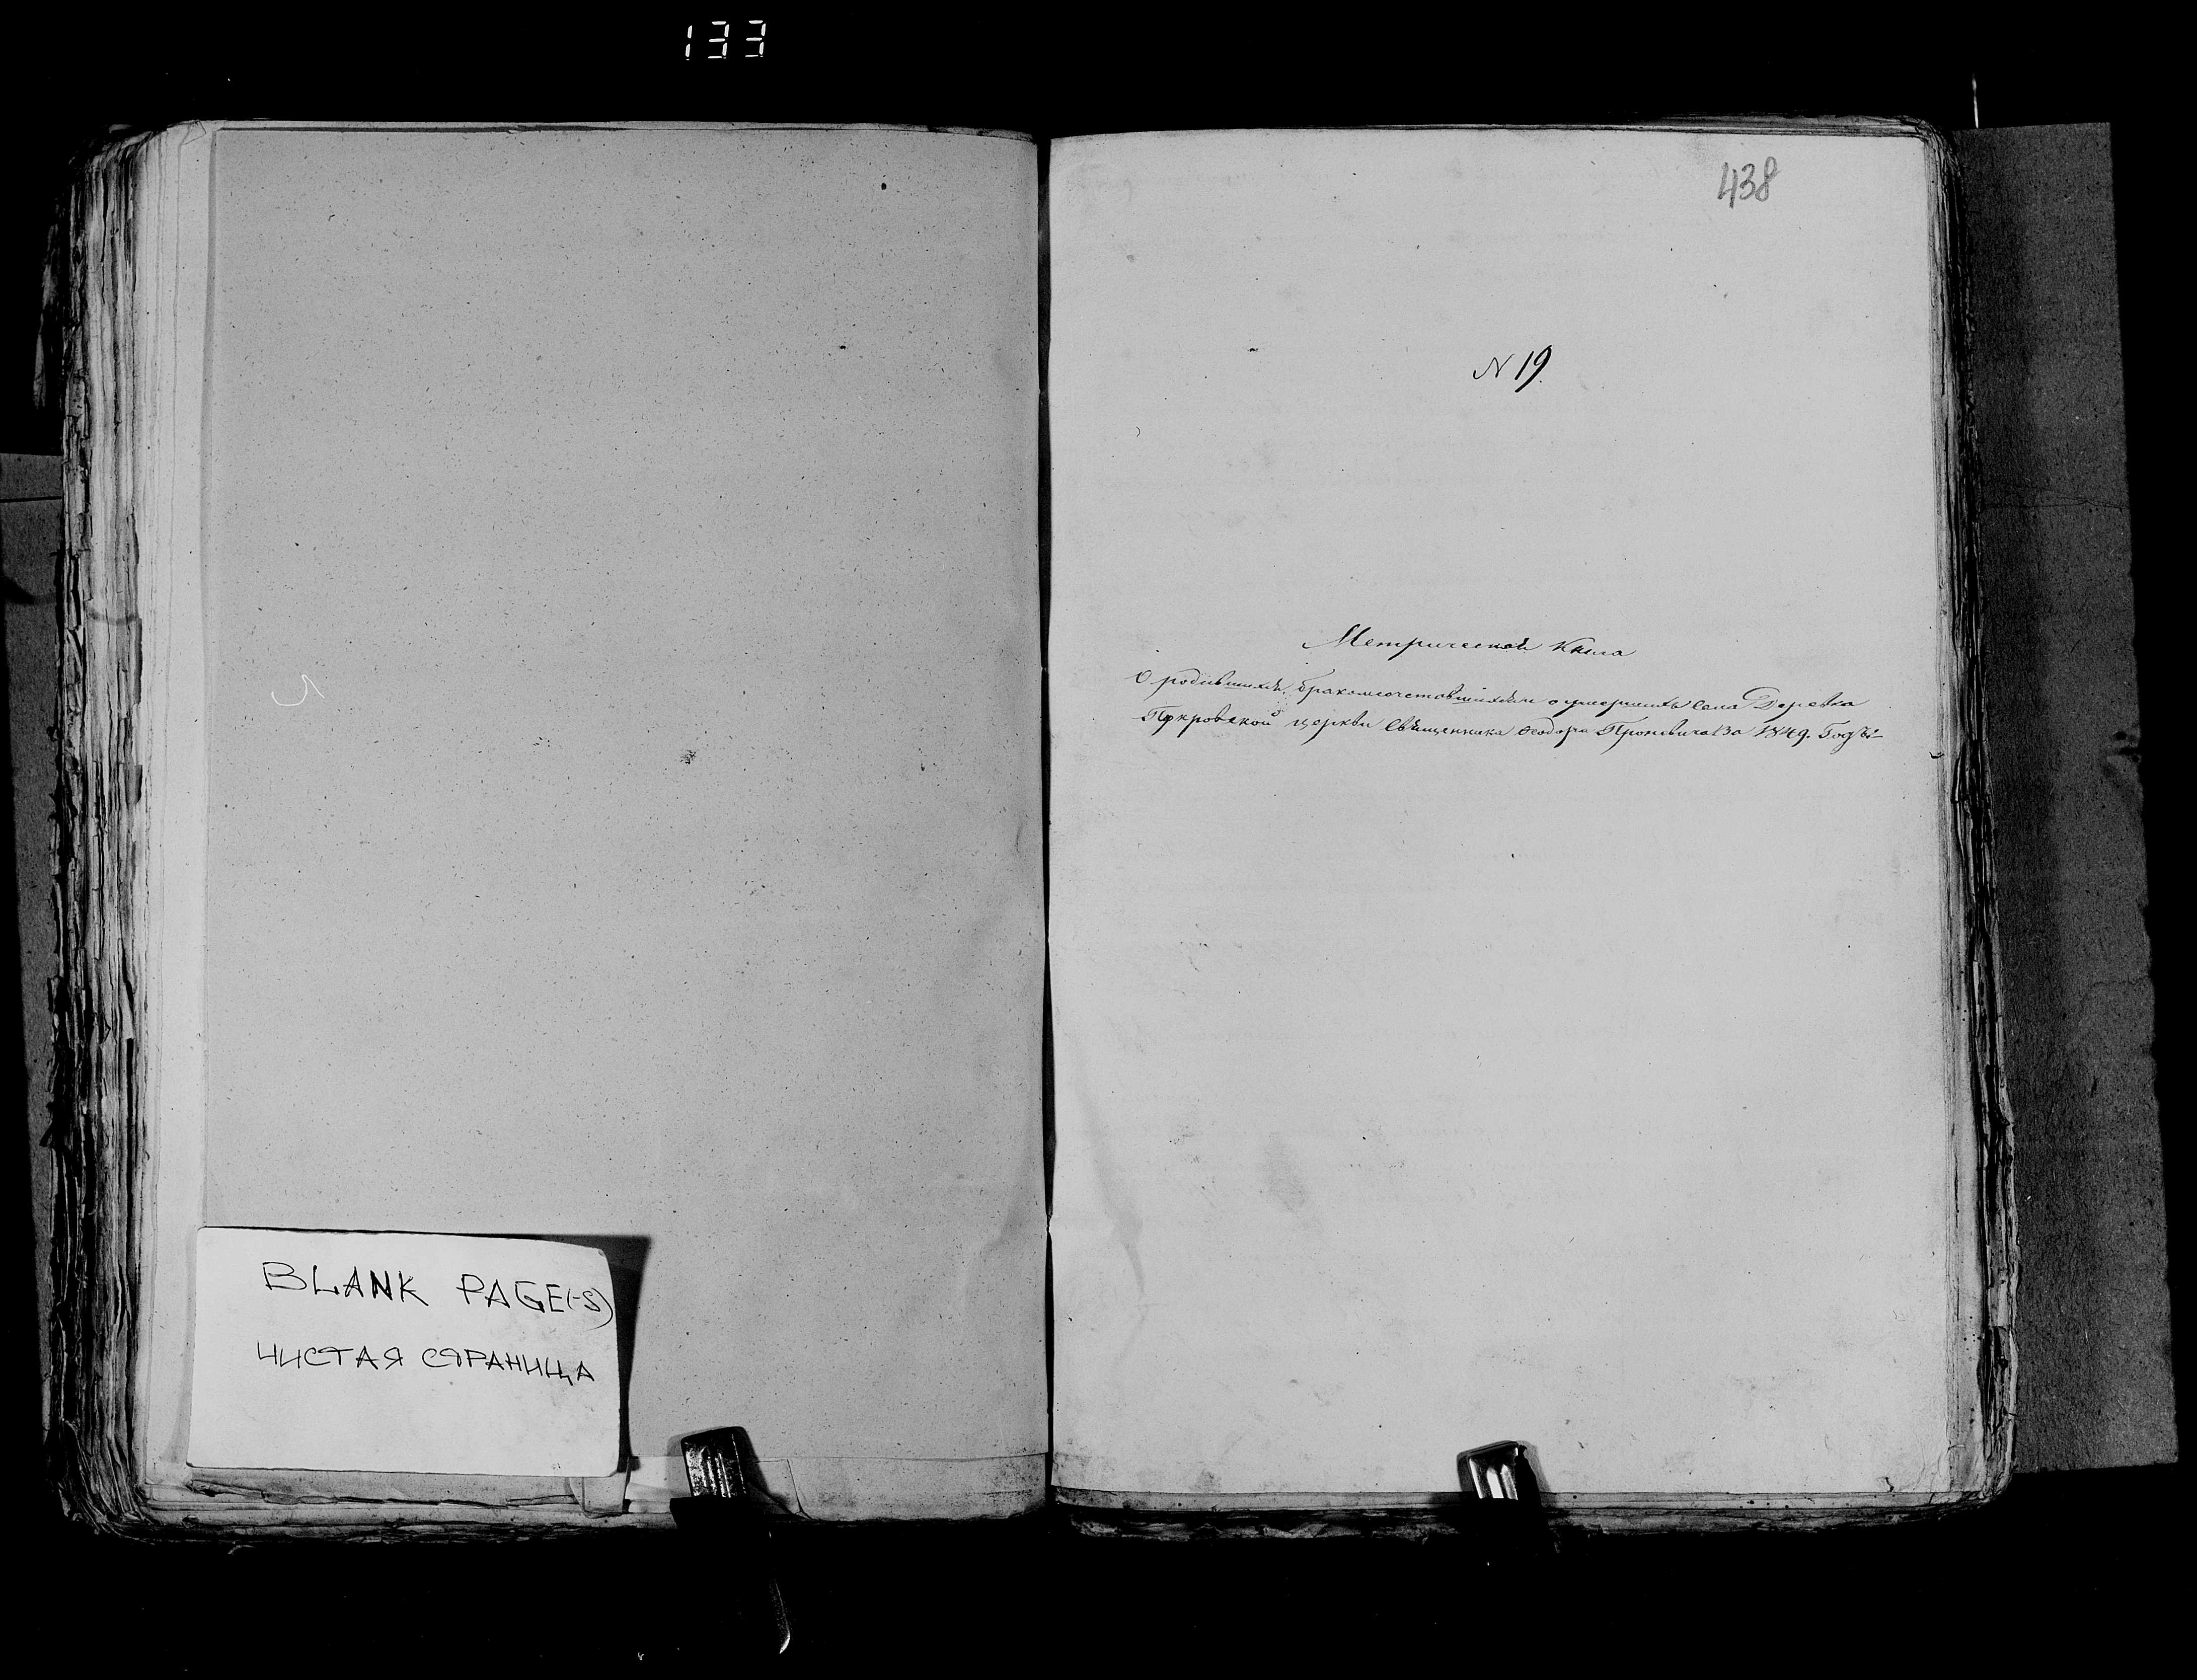 133
BLANK PAGE(-S)
ЧИСТАЯ СТРАНИЦА
438
N 19.
Метрической Книга
О родившихся, бракомсочетавшихся и о умершихъ села Деревка
Покровской церкви Священника Феодора за 1849. Годъ